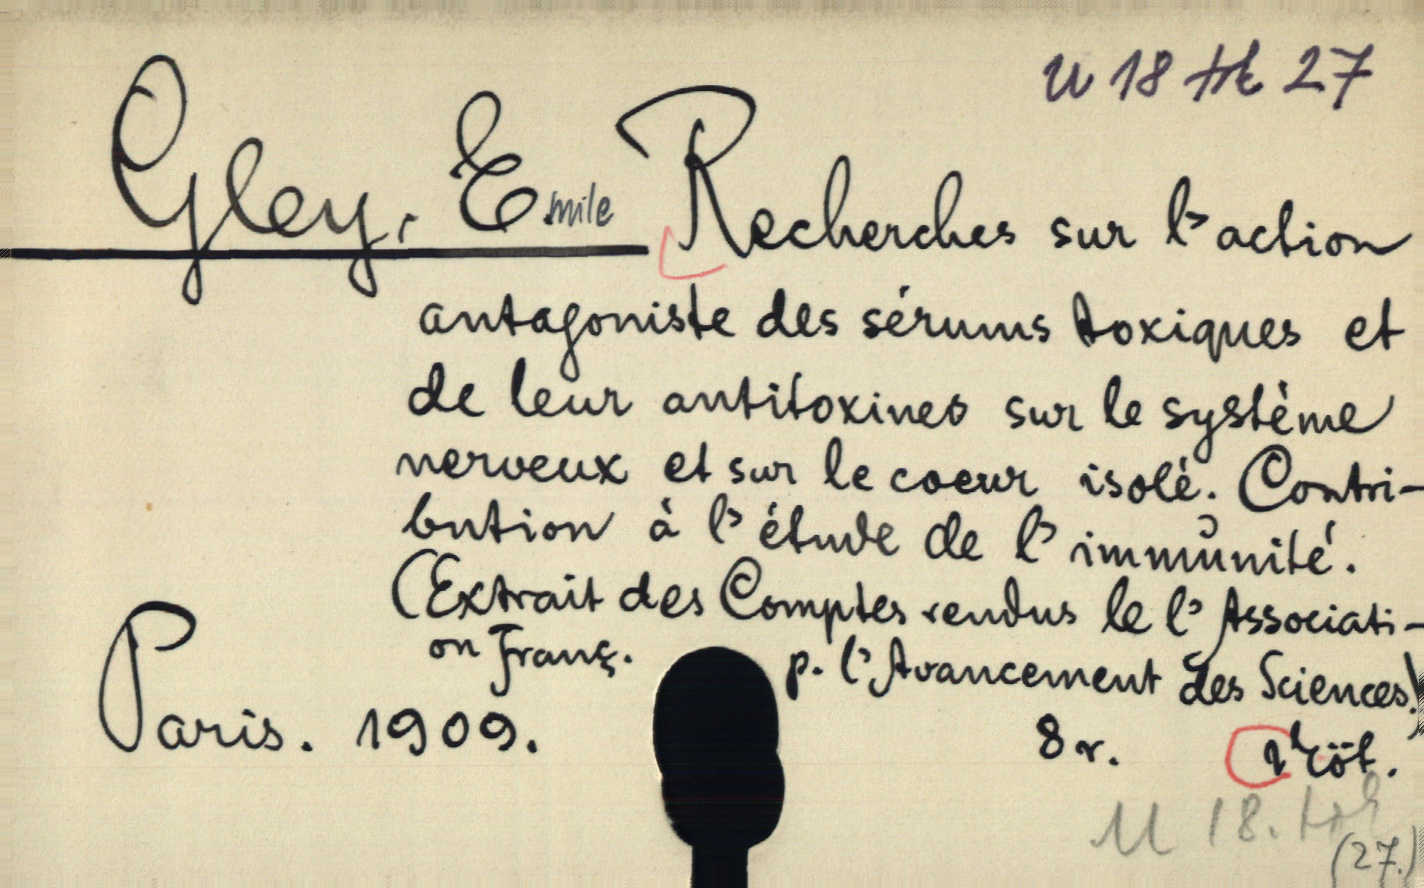 U 18 Hk 27
Gley, Emile Recherches sur l'action
antagoniste des sérums toxiques et
de leur antitoxines sur le système
nerveux et sur le coeur isolé. Contri-
bution à l'étude de l'immunité.
(Extrait des Comptes rendus le l'Associati-
on Franç. p. l'Avancement des Sciences.)
Paris. 1909. 8 r. köt.
U 18.
(27.)